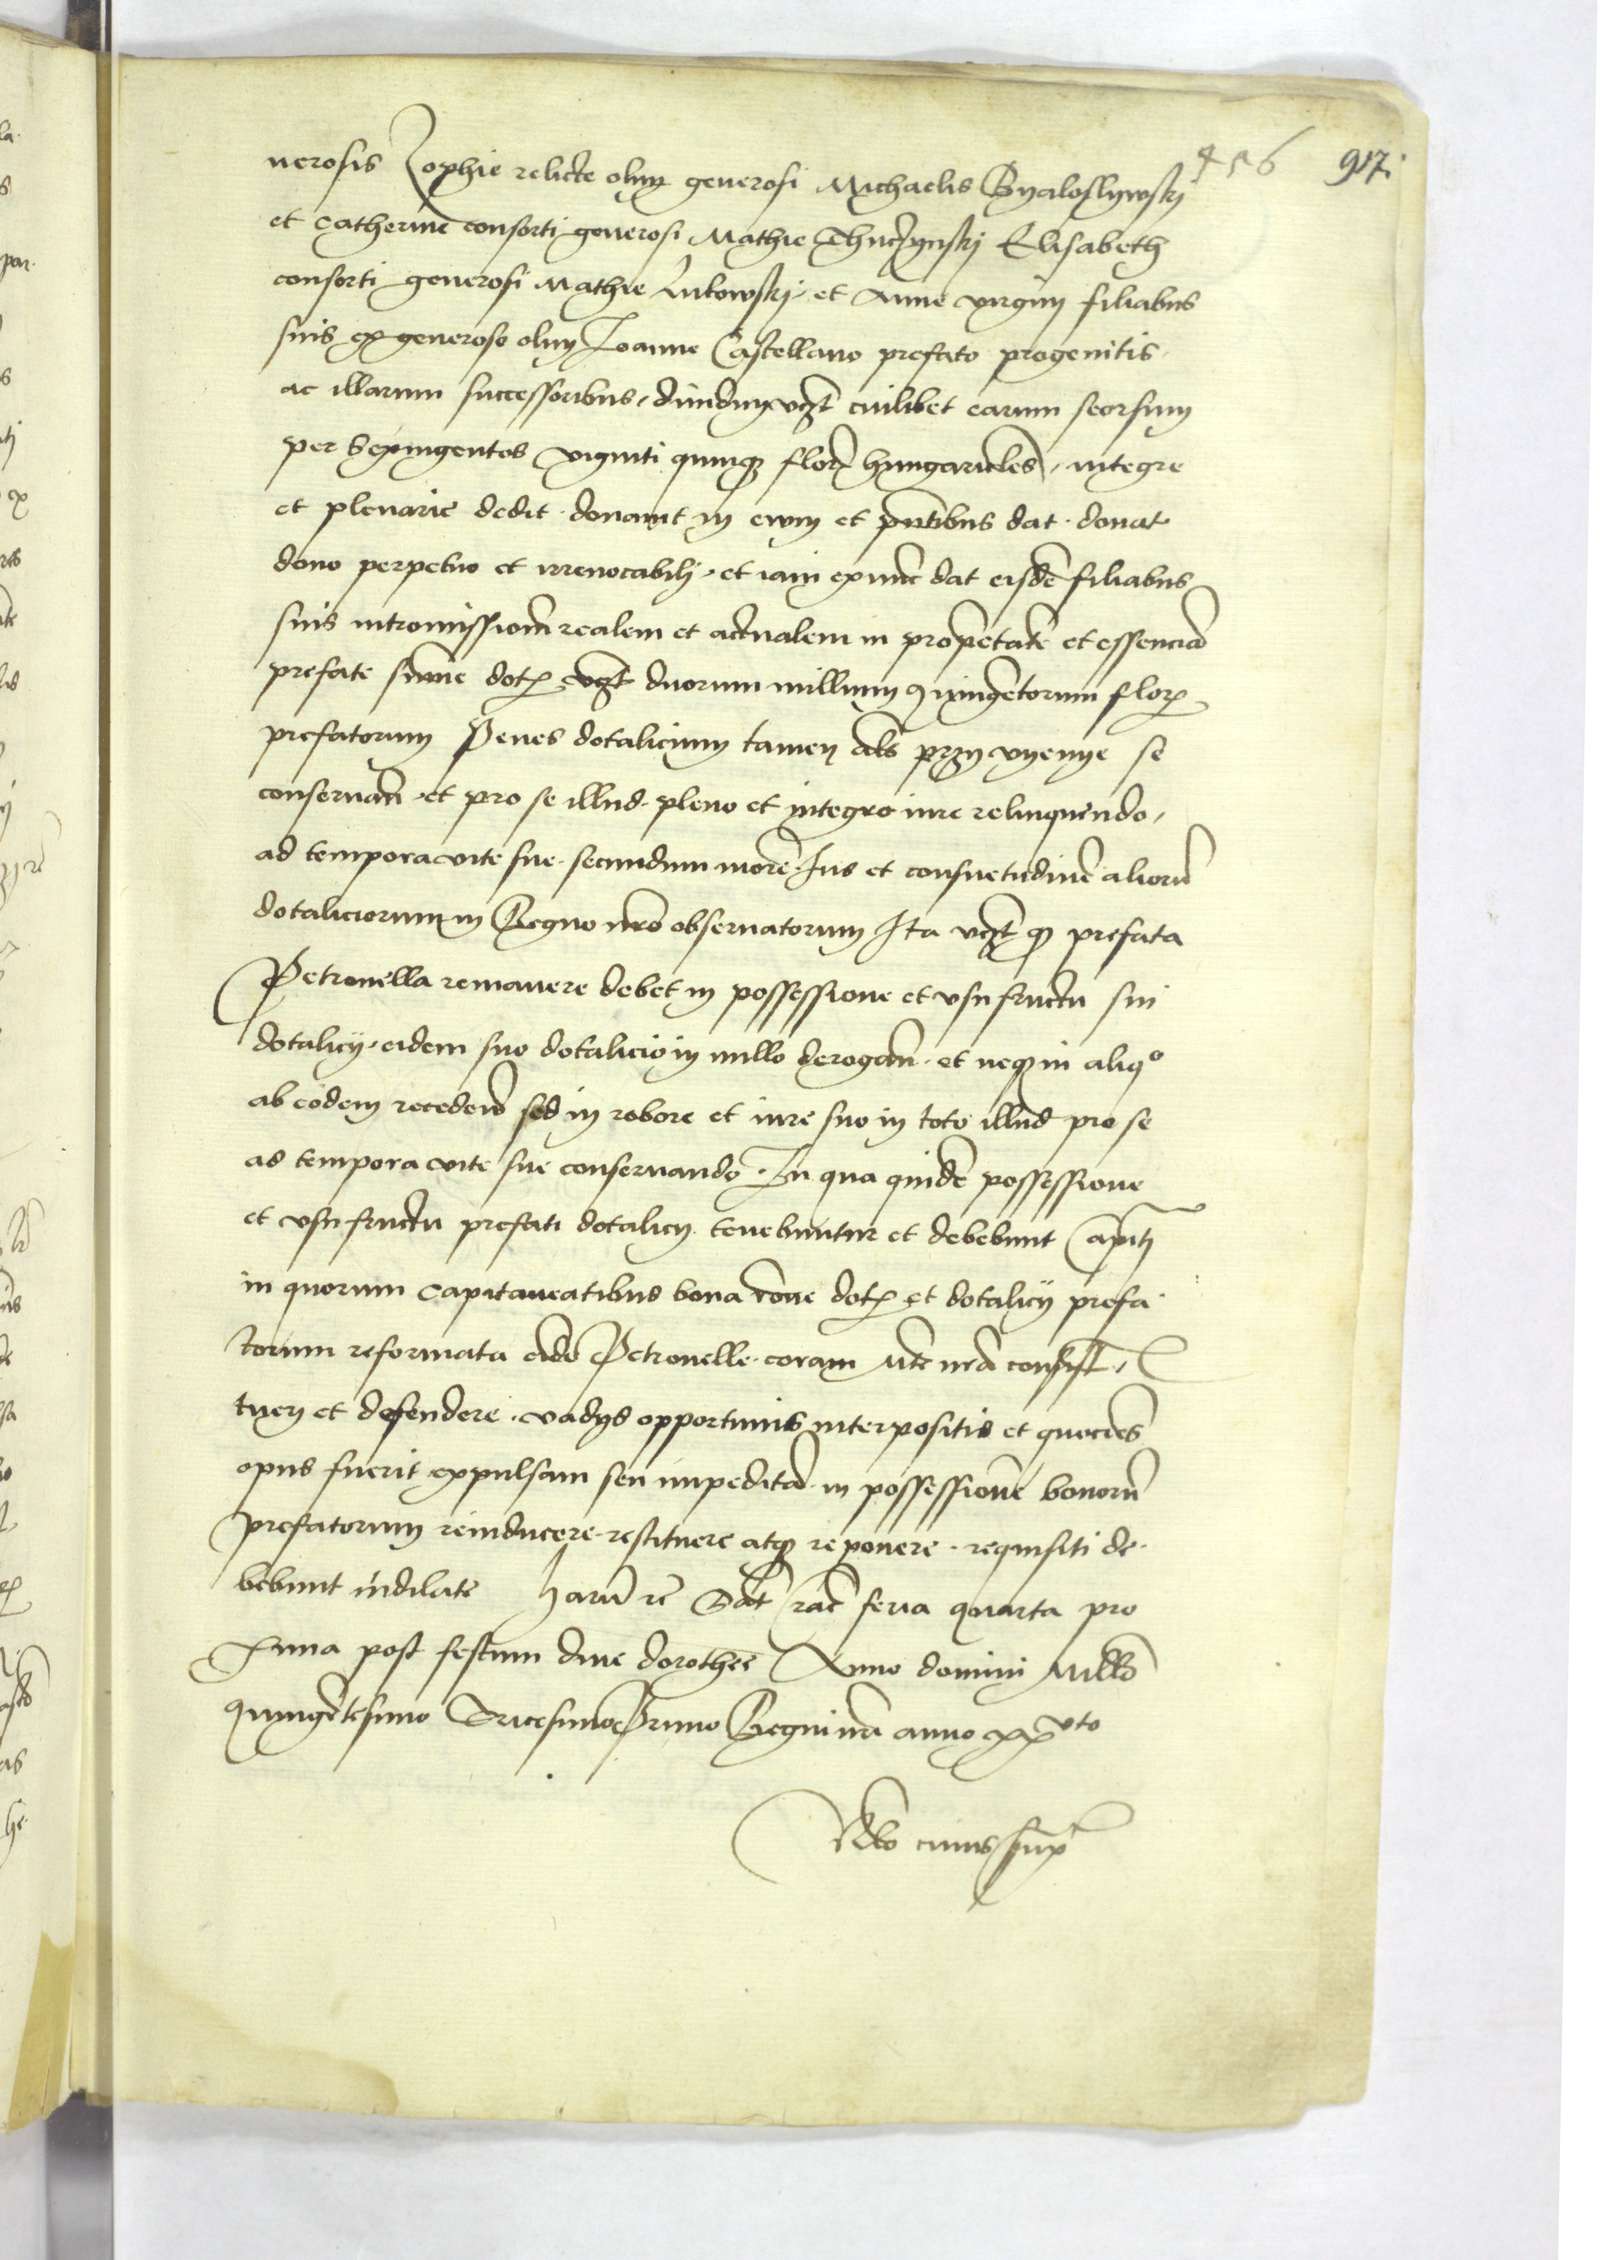 456 917.
nerosis Zophie relicte olim generosi Michaelis Byaloslywskj
et Catherine consorti generosi Mathie Elisabeth
consorti generosi Mathie Lutowskj et Anne virginj filiabus
suis ex generoso olim Joanne Castellano prefato progenitis
ac illarum successoribus, diuidim vcz̃t cuilibet earum seorsum
per Sexingentos viginti quinqz florẽ hungaricales, integre
et plenarie dedit donauit in ewm et pñtibus dat donat
dono perpetuo et irreuocabilj et iam exnunc dat eisdẽ filiabus
suis intromissioñ realem et actualem in proprietatẽ et essenciã
prefate sũme dotꝭ vcz̃t duorum millium quingẽtorum florꝭ
prefatorum Penes dotalicium tamen als̃ przy vyenye se
conseruañ et pro se illud pleno et integro iure relinquendo,
ad tempora vite sue secundum morẽ Jus et consuetudinẽ aliorũ
dotaliciorum in Regno nrõ obseruatorum Ita vcz̃t qꝫ prefata
Petronella remanere debet in possessione et vsufructu sui
dotalicij eidem suo dotalicio in nullo derogañ et neqꝫ in aliqº
ab eodem recedeñ sed in robore et iure suo in toto illud pro se
ad tempora vite sue conseruando In qua quidẽ possessione
et vsufructu prefati dotalicij tenebuntur et debebunt Capitj
in quorum Capitaneatibus bona rõne dotꝭ et dotalicij prefa
torum reformata eidẽ Petronelle coram Mte nrã consist̃,
tuerj et defendere vadijs opportunis interpositis et quociẽs
opus fuerit expulsam seu impeditã in possessionẽ bonorũ
prefatorum reinducere restituere atqꝫ reponere requisiti de
bebunt indilate harũ rẽ Dat̃ Crac̃ feria quarta pro
xima post festum diue dorothee Anno domini Millõ
quingẽtesimo Tricesimo Primo Regni nrĩ anno xxvto